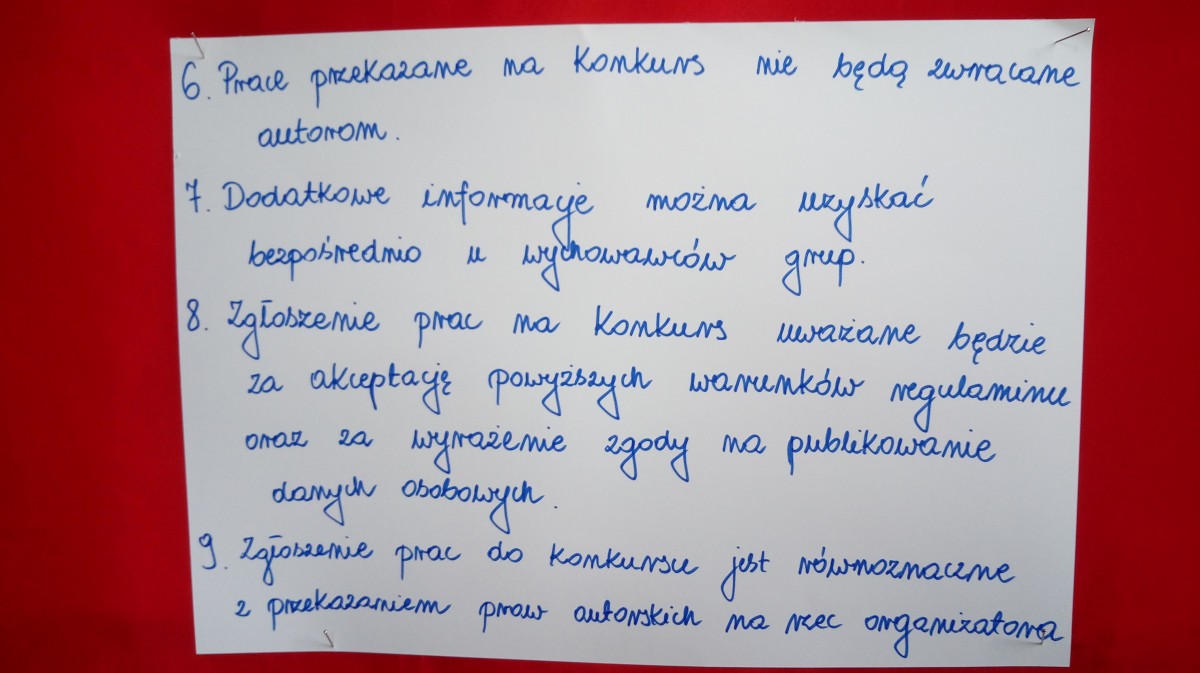 6. Prace przekazane na konkurs nie będą zwracane
autorom.
7. Dodatkowe informacje można uzyskać
bezpośrednio u wychowawców grup.
8. Zgłoszenie prac na konkurs uważane będzie
za akceptację powyższych warunków regulaminu
oraz za wyrażenie zgody na publikowanie
danych osobowych.
9. Zgłoszenie prac do konkursu jest równoznaczne
z przekazaniem praw autorskich na rzec organizatora